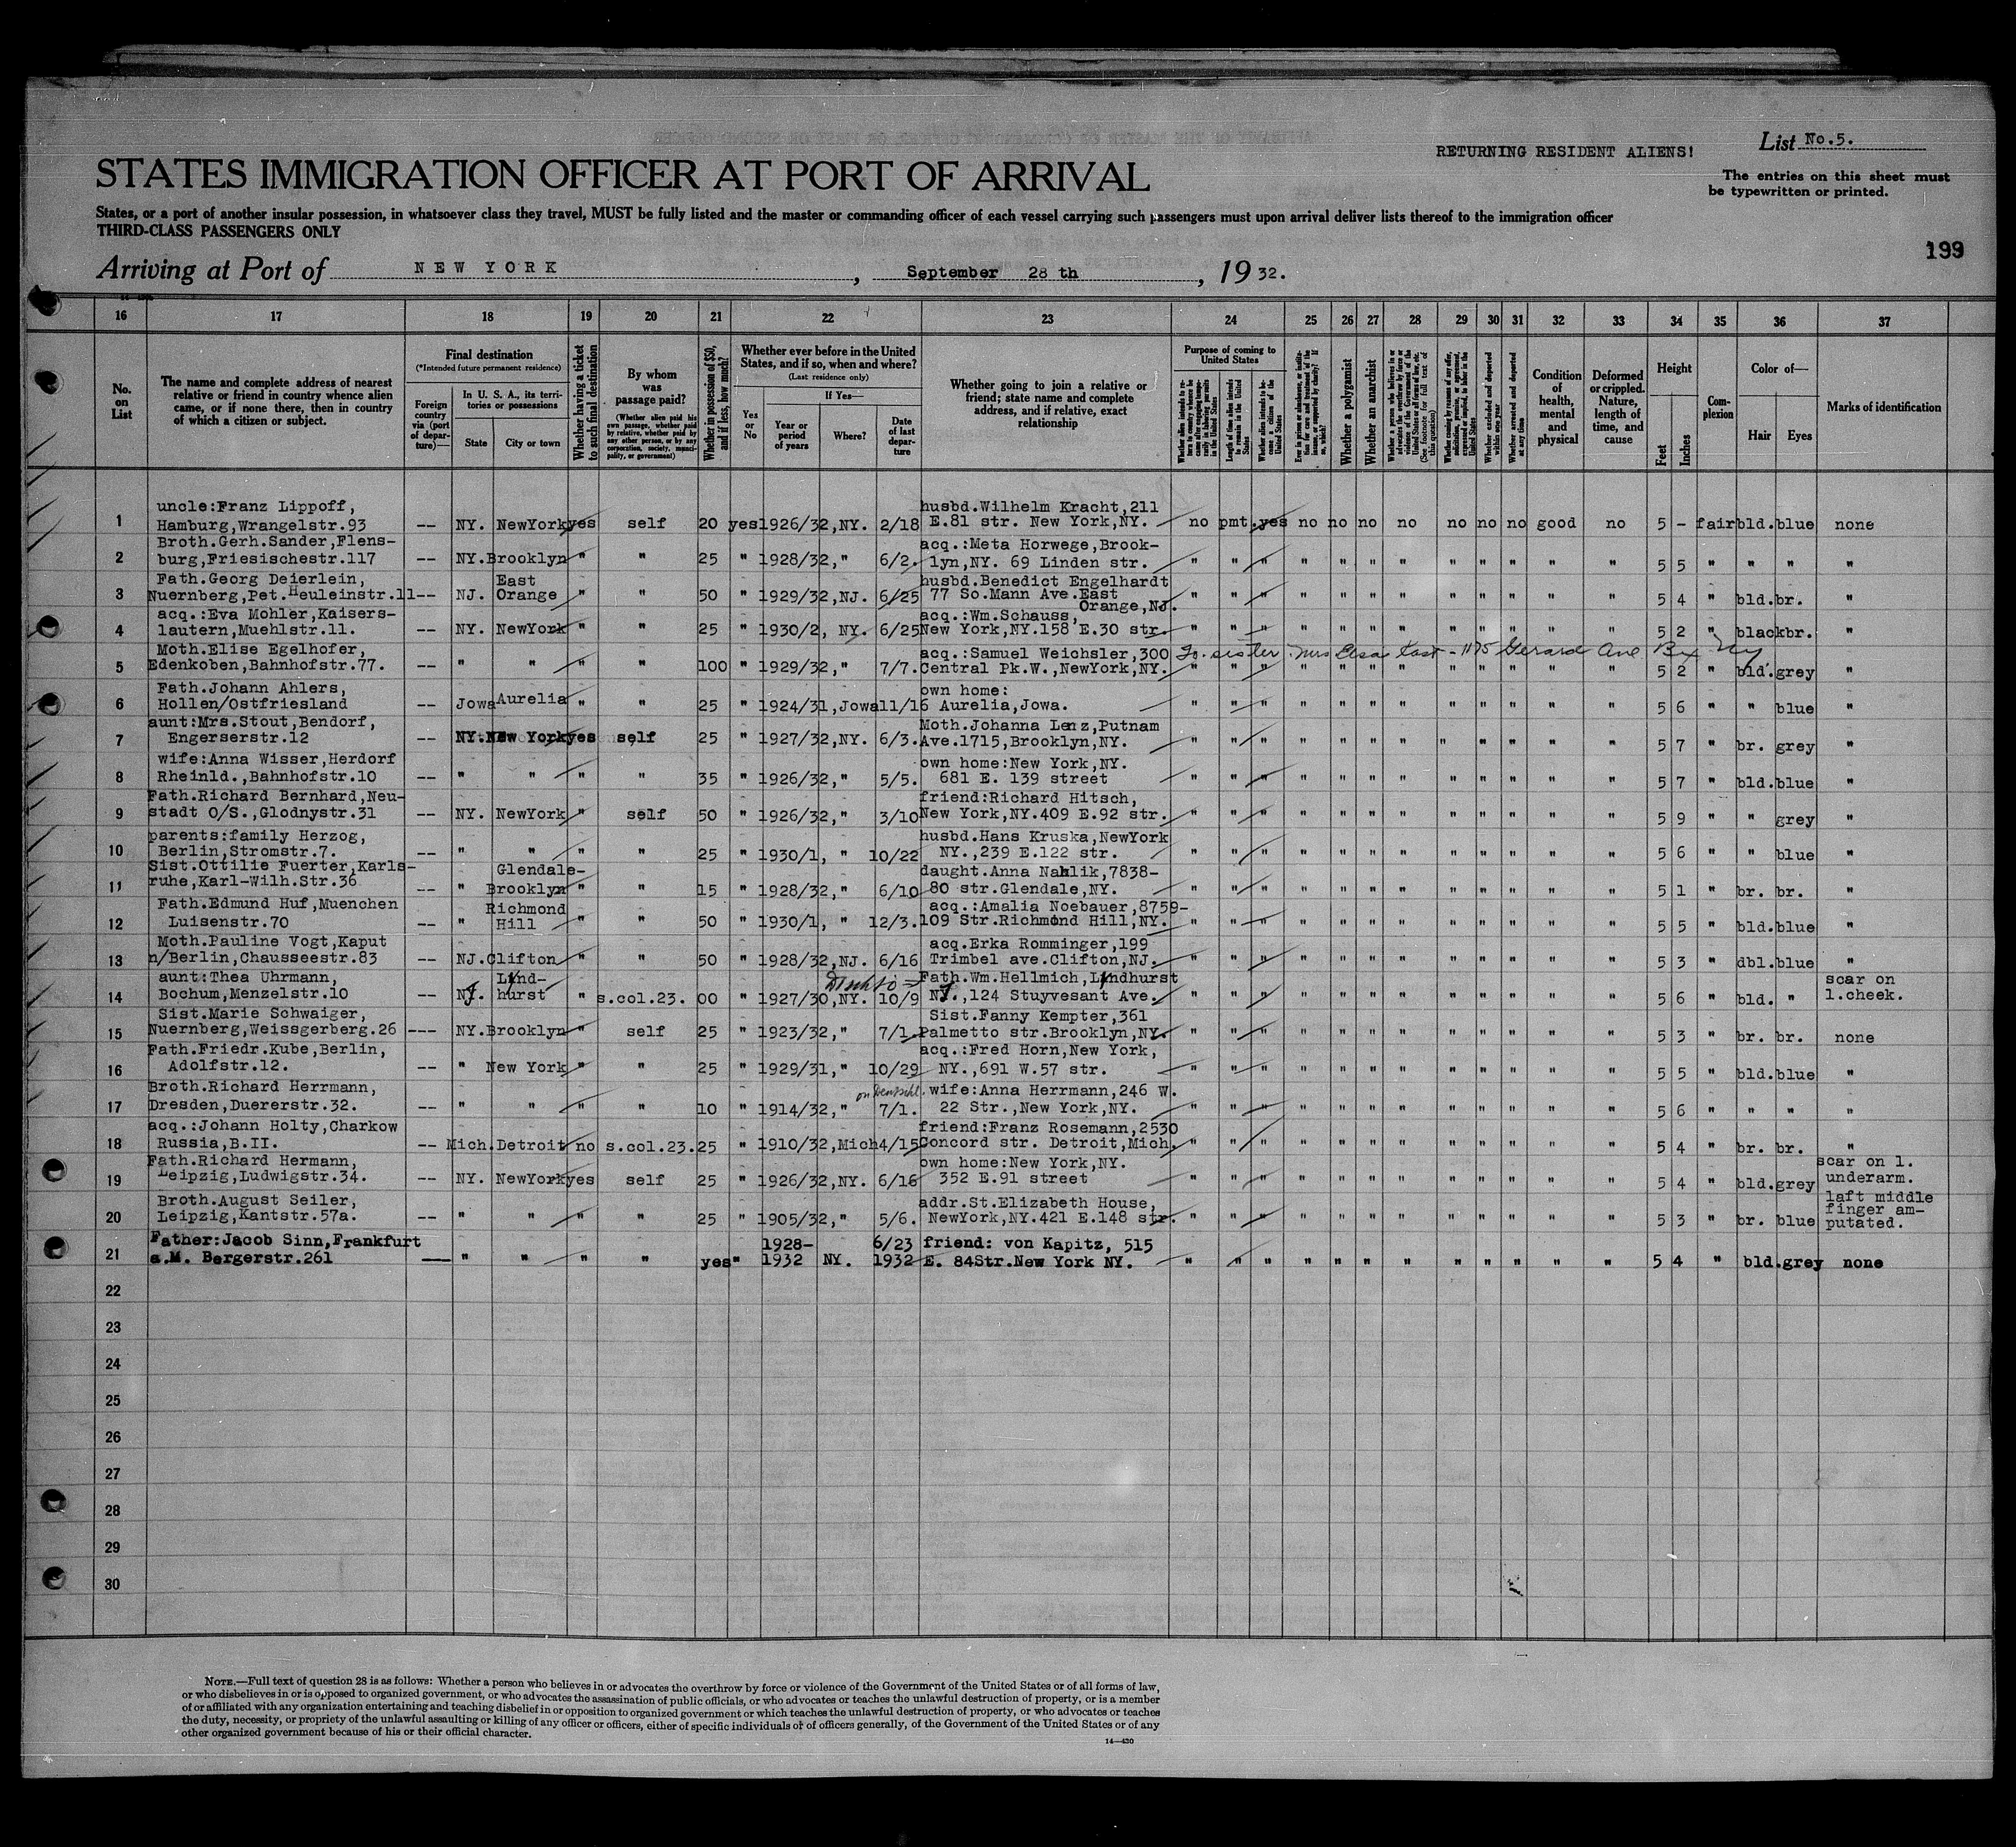 List No.5.
RETURNING RESIDENT ALIENS!
STATES IMMIGRATION OFFICER AT PORT OF ARRIVAL
The entries on this sheet must
be typewritten or printed.
States, or a port of another insular possession, in whatsoever class they travel, MUST be fully listed and the master or commanding officer of each vessel carrying such passengers must upon arrival deliver lists thereof to the immigration officer
THIRD-CLASS PASSENGERS ONLY
199
Arriving at Port of NEW YORK, September 28 th, 19 32.
16 17 18 19 20 21 22 23 24 25 26 27 28 29 30 31 32 33 34 35 36 37
No. on List
The name and complete address of nearest
relative or friend in country whence alien
came, or if none there, then in country
of which a citizen or subject.
Final destination
(*Intended future permanent residence)
Foreign country via (port of departure)—
In U. S. A., its territories or possessions
State
City or town
Whether having a ticket to such final destination
By whom was passage paid?
(Whether alien paid his own passage, whether paid by relative, whether paid by any other person, or by any corporation, society, municipality, or government)
Whether in possession of $50, and if less, how much?
Whether ever before in the United States, and if so, when and where?
(Last residence only)
Yes or No
If Yes—
Year or period of years
Where?
Date of last departure
Whether going to join a relative or
friend; state name and complete
address, and if relative, exact
relationship
Purpose of coming to United States
Length of time alien intends to remain in the United States
Whether alien intends to become a citizen of the United States
Whether a polygamist
Whether an anarchist
(See footnote for full text of this question)
Whether excluded and deported within one year
Whether arrested and deported at any time
Condition of health, mental and physical
Deformed or crippled. Nature, length of time, and cause
Height
Feet
Inches
Complexion
Color of—
Hair
Eyes
Marks of identification
uncle:Franz Lippoff, husbd.Wilhelm Kracht,211
1 Hamburg,Wrangelstr.93 -- NY. NewYork yes self 20 yes 1926/32,NY. 2/18 E.81 str. New York,NY. no pmt. yes no no no no no no no good no 5 - fair bld. blue none
Broth.Gerh.Sander,Flens- acq.:Meta Horwege,Brook-
2 burg,Friesischestr.117 -- NY. Brooklyn " " 25 " 1928/32," 6/2. lyn,NY. 69 Linden str. " " " " " " " " " " " " 5 5 " " " "
Fath.Georg Deierlein, East husbd.Benedict Engelhardt
3 Nuernberg,Pet.Heuleinstr.11 -- NJ. Orange " " 50 " 1929/32,NJ. 6/25 77 So.Mann Ave.East Orange,NJ. " " " " " " " " " " " " 5 4 " bld. br. "
acq.:Eva Mohler,Kaisers- acq.:Wm.Schauss,
4 lautern,Muehlstr.11. -- NY. NewYork " " 25 " 1930/2, NY. 6/25 New York,NY.158 E.30 str. " " " " " " " " " " " " 5 2 " black br. "
Moth.Elise Egelhofer, acq.:Samuel Weichsler,300 To sister Mrs Elsa Kast - 1175 Gerard Ave Bx Ny
5 Edenkoben,Bahnhofstr.77. -- " " " " 100 " 1929/32," 7/7. Central Pk.W.,NewYork,NY. " " " " " " " " " " " " 5 2 " bld. grey "
Fath.Johann Ahlers, own home:
6 Hollen/Ostfriesland -- Jowa Aurelia " " 25 " 1924/31,Jowa 11/16 Aurelia,Jowa. " " " " " " " " " " " " 5 6 " " blue "
aunt:Mrs.Stout,Bendorf, Moth.Johanna Lenz,Putnam
7 Engerserstr.12 -- NY. New York yes self 25 " 1927/32,NY. 6/3. Ave.1715,Brooklyn,NY. " " " " " " " " " " " " 5 7 " br. grey "
wife:Anna Wisser,Herdorf own home:New York,NY.
8 Rheinld.,Bahnhofstr.10 -- " " " " 35 " 1926/32," 5/5. 681 E. 139 street " " " " " " " " " " " " 5 7 " bld. blue "
Fath.Richard Bernhard,Neu- friend:Richard Hitsch,
9 stadt O/S.,Glodnystr.31 -- NY. NewYork " self 50 " 1926/32," 3/10 New York,NY.409 E.92 str. " " " " " " " " " " " " 5 9 " " grey "
parents:family Herzog, husbd.Hans Kruska,NewYork
10 Berlin,Stromstr.7. -- " " " " 25 " 1930/1, " 10/22 NY.,239 E.122 str. " " " " " " " " " " " " 5 6 " " blue "
Sist.Ottilie Fuerter,Karls- Glendale- daught.Anna Nahlik,7838-
11 ruhe,Karl-Wilh.Str.36 -- " Brooklyn " " 15 " 1928/32," 6/10 80 str.Glendale,NY. " " " " " " " " " " " " 5 1 " br. br. "
Fath.Edmund Huf,Muenchen Richmond acq.:Amalia Noebauer,8759-
12 Luisenstr.70 -- " Hill " 50 " 1930/1, " 12/3. 109 Str.Richmond Hill,NY. " " " " " " " " " " " " 5 5 " bld. blue "
Moth.Pauline Vogt,Kaput acq.Erka Romminger,199
13 n/Berlin,Chausseestr.83 -- NJ. Clifton " " 50 " 1928/32,NJ. 6/16 Trimbel ave.Clifton,NJ. " " " " " " " " " " " " 5 3 " dbl. blue "
aunt:Thea Uhrmann, Lynd- Fath.Wm.Hellmich,Lyndhurst scar on
14 Bochum,Menzelstr.10 -- NJ. hurst " s.col.23. 00 " 1927/30,NY. 10/9 NJ.,124 Stuyvesant Ave. " " " " " " " " " " " " 5 6 " bld. " l.cheek.
Sist.Marie Schwaiger, Sist.Fanny Kempter,361
15 Nuernberg,Weissgerberg.26 --- NY. Brooklyn " self 25 " 1923/32," 7/1. Palmetto str.Brooklyn,NY. " " " " " " " " " " " " 5 3 " br. br. none
Fath.Friedr.Kube,Berlin, acq.:Fred Horn,New York,
16 Adolfstr.12. -- " New York " " 25 " 1929/31," 10/29 NY.,691 W.57 str. " " " " " " " " " " " " 5 5 " bld. blue "
Broth.Richard Herrmann, wife:Anna Herrmann,246 W.
17 Dresden,Duererstr.32. -- " " " " 10 " 1914/32," 7/1. 22 Str.,New York,NY. " " " " " " " " " " " " 5 6 " " " "
acq.:Johann Holty,Charkow friend:Franz Rosemann,2530
18 Russia,B.II. -- Mich. Detroit no s.col.23. 25 " 1910/32,Mich 4/15 Concord str. Detroit,Mich. " " " " " " " " " " " " 5 4 " br. br. "
Fath.Richard Hermann, own home:New York,NY. scar on l.
19 Leipzig,Ludwigstr.34. -- NY. NewYork yes self 25 " 1926/32,NY. 6/16 352 E.91 street " " " " " " " " " " " " 5 4 " bld. grey underarm.
Broth.August Seiler, addr.St.Elizabeth House, laft middle finger am-
20 Leipzig,Kantstr.57a. -- " " " " 25 " 1905/32," 5/6. NewYork,NY.421 E.148 str. " " " " " " " " " " " " 5 3 " br. blue putated.
Father:Jacob Sinn,Frankfurt 1928- 6/23 friend: von Kapitz, 515
21 a.M. Bergerstr.261 -- " " " " yes " 1932 NY. 1932 E. 84Str.New York NY. " " " " " " " " " " " " 5 4 " bld. grey none
22
23
24
25
26
27
28
29
30
NOTE.—Full text of question 28 is as follows: Whether a person who believes in or advocates the overthrow by force or violence of the Government of the United States or of all forms of law,
or who disbelieves in or is opposed to organized government, or who advocates the assassination of public officials, or who advocates or teaches the unlawful destruction of property, or is a member
of or affiliated with any organization entertaining and teaching disbelief in or opposition to organized government or which teaches the unlawful destruction of property, or who advocates or teaches
the duty, necessity, or propriety of the unlawful assaulting or killing of any officer or officers, either of specific individuals or of officers generally, of the Government of the United States or of any
other organized government because of his or their official character.
14—430